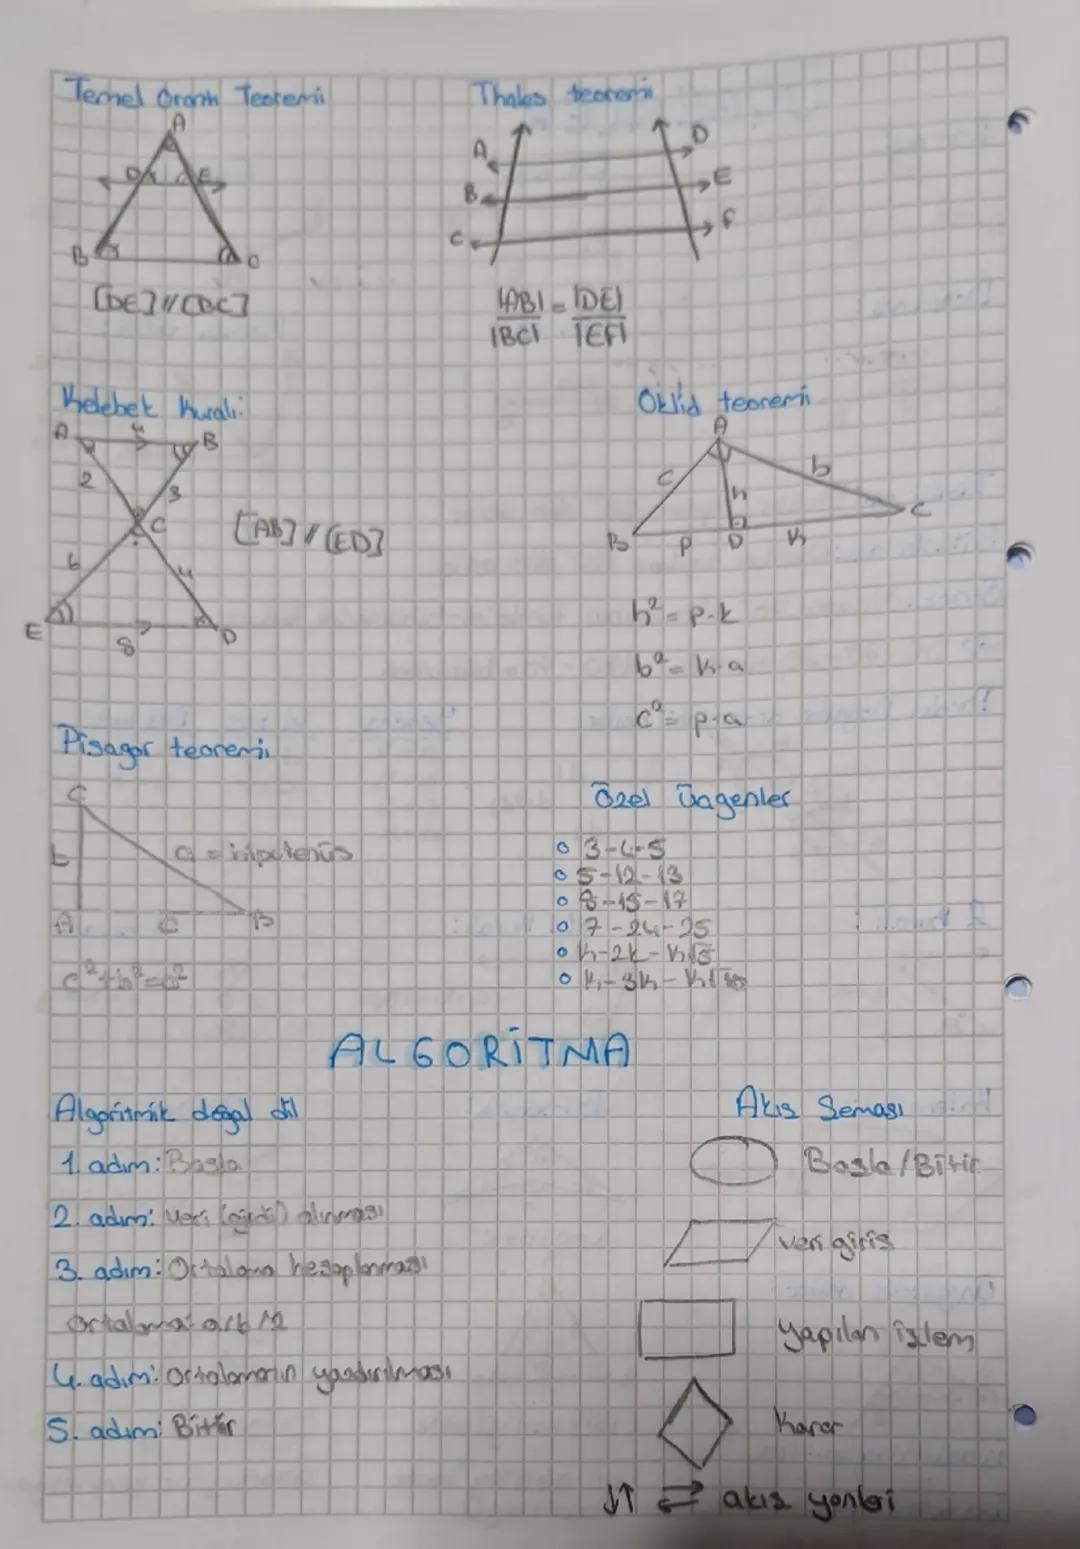 Temel Orantı Teoremi
A
D E
B C
[DE]//[BC]
Thales teoremi
A D
B E
C F
|AB| = |DE|
|BC| |EF|
Kelebek Kuralı:
A 4 B
2 3
C
[AB]//[ED]
6 4
E 8 D
Öklid teoremi
A
c b
h
B p D k C
h² = p.k
b² = k.a
c² = p.a
Pisagor teoremi
C
b a = hipotenüs
A c B
c²+b²=a²
Özel Üçgenler
3-4-5
5-12-13
8-15-17
7-24-25
k-2k-k√5
k-3k-k√10
ALGORİTMA
Algoritmik doğal dil
1. adım: Başla
2. adım: Veri (girdi) alınması
3. adım: Ortalama hesaplanması
Ortalama: a+b/2
4. adım: Ortalamanın yazdırılması
5. adım: Bitir
Akıs Seması
Basla/Bitir
veri giris
yapılan islem
Karar
↓↑ ⇄ akıs yonleri